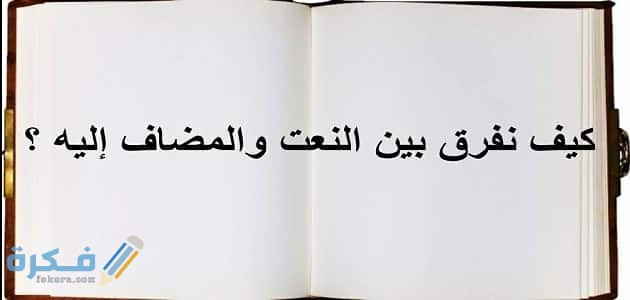 كيف نفرق بين النعت والمضاف إليه ؟
فكرة
fekera.com